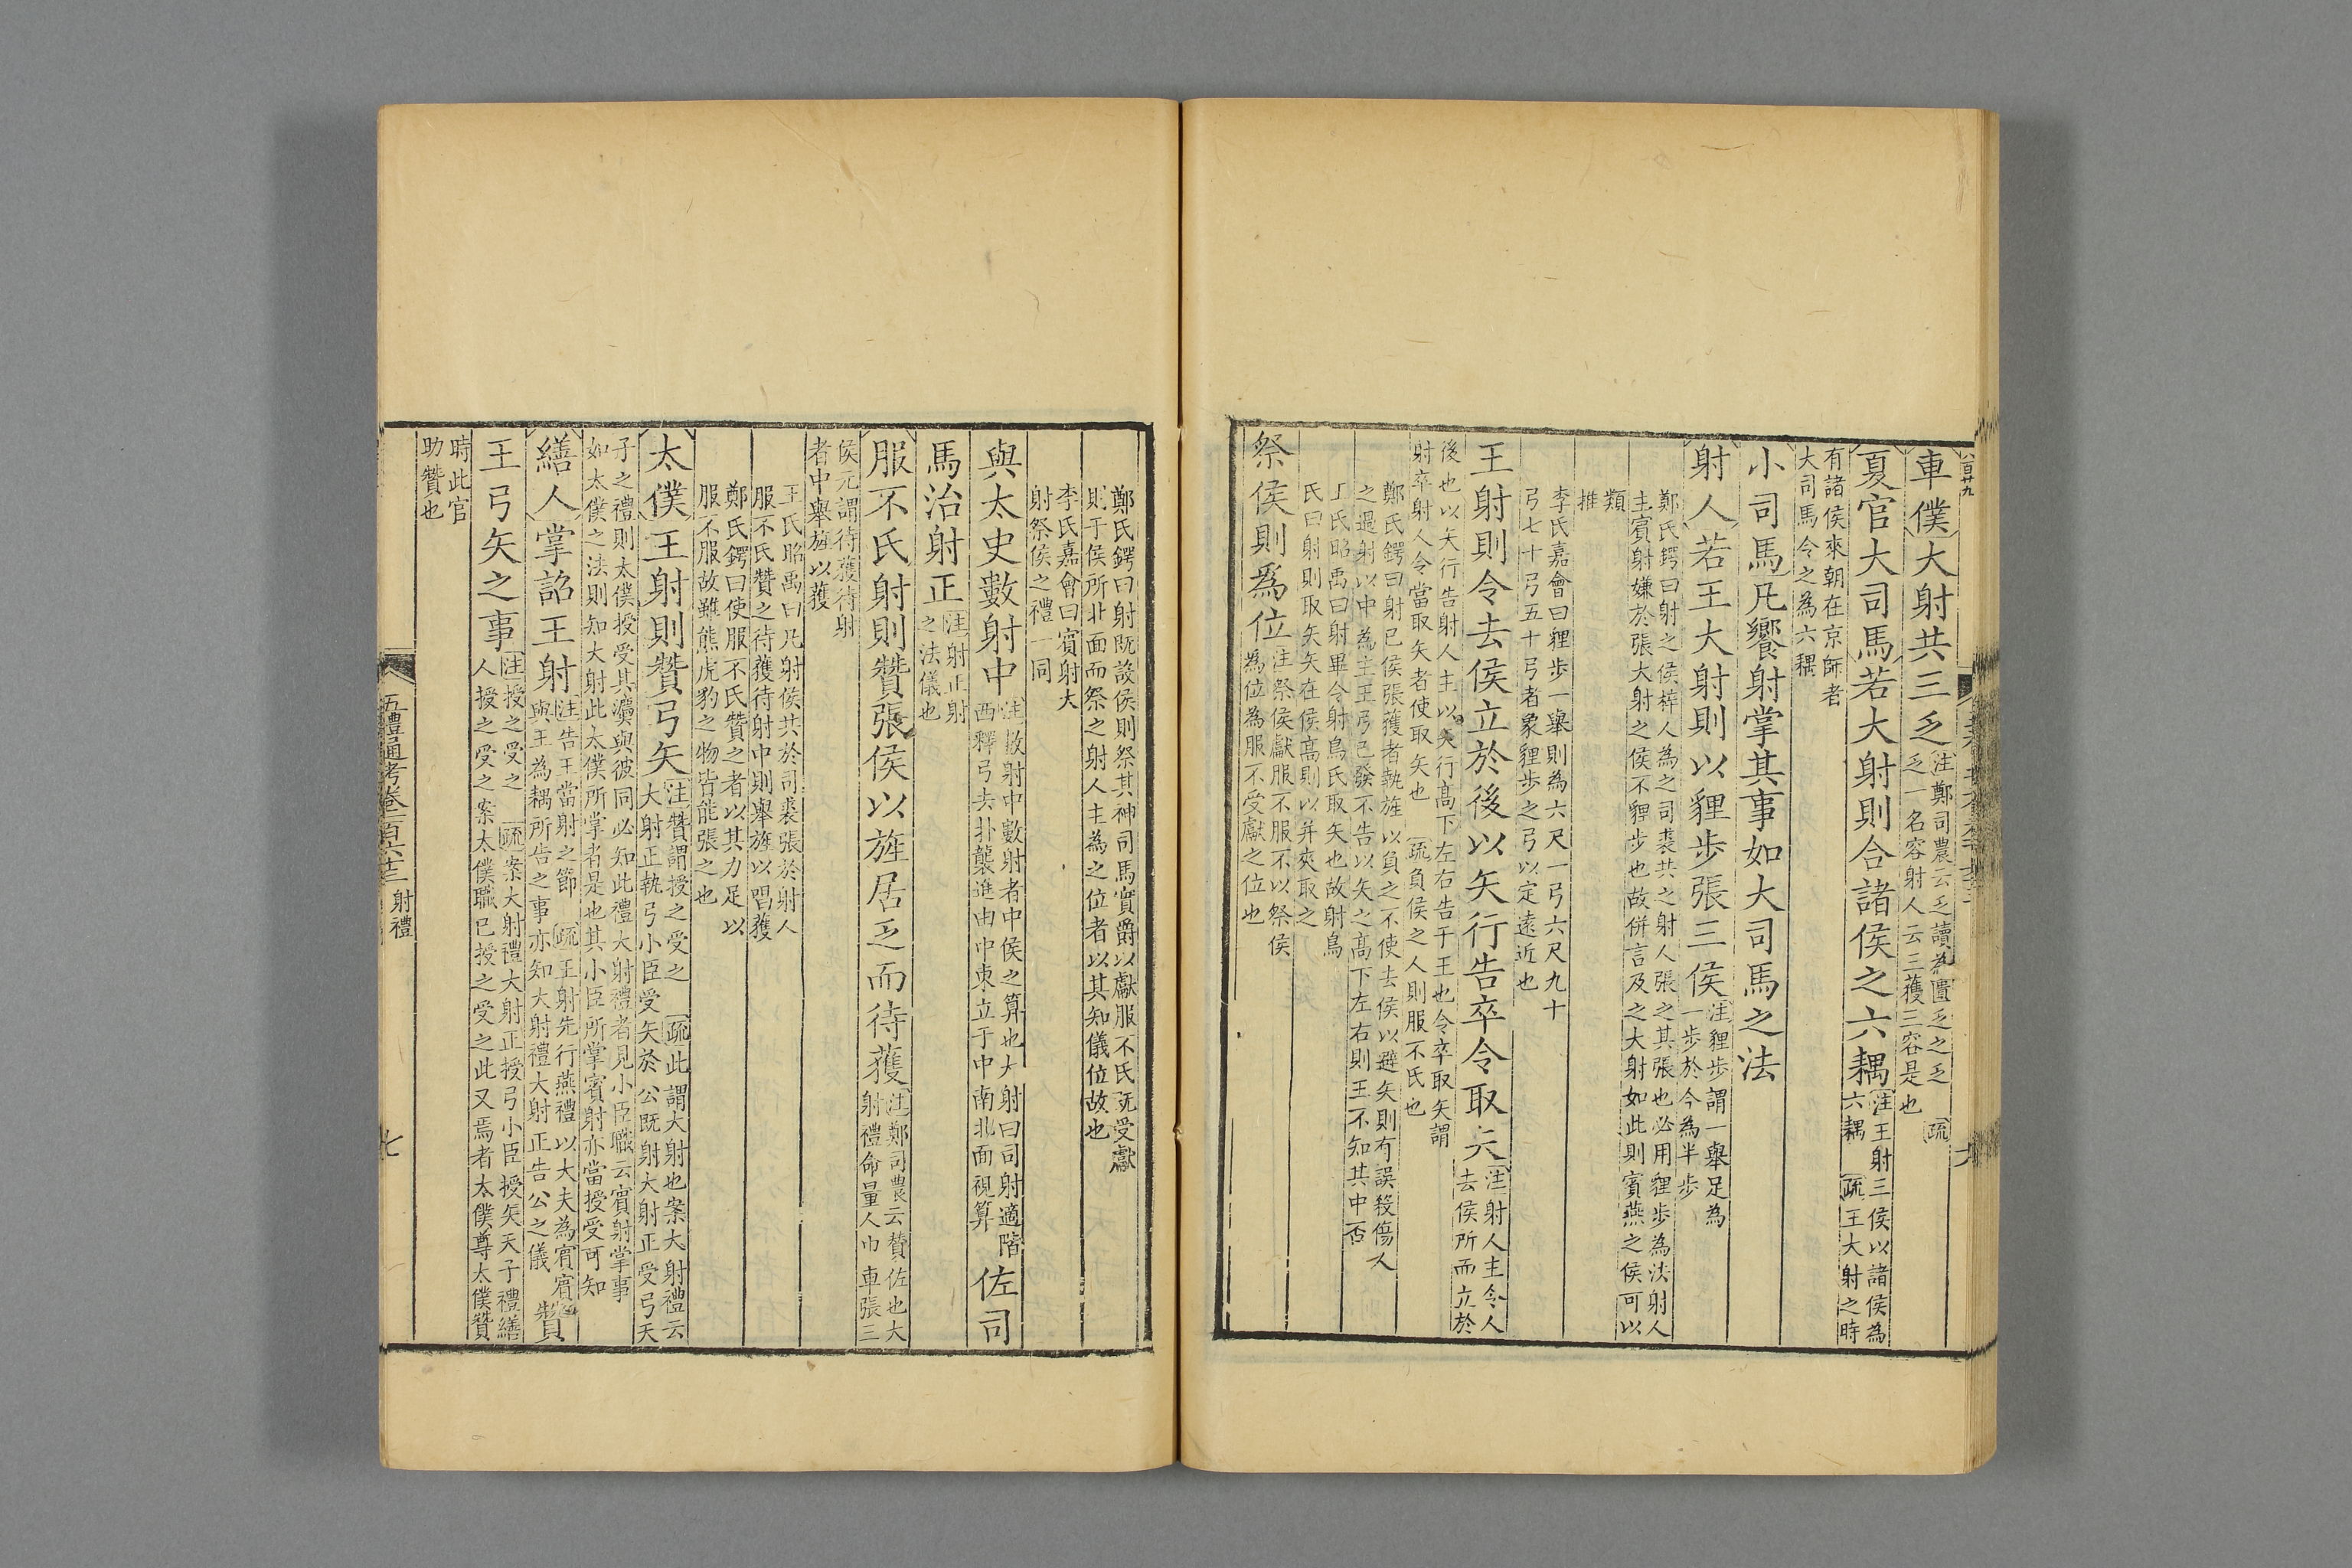 車僕大射共三乏注鄭司農云乏讀為匱乏之乏 疏
乏一名容射人云三獲三容是也
夏官大司馬若大射則合諸侯之六耦注王射三侯以諸侯為
六耦 疏王大射之時
有諸侯來朝在京師者
大司馬令之為六耦
小司馬凡饗射掌其事如大司馬之法
射人若王大射則以貍步張三侯注貍步謂一舉足為
一步於今為半步
鄭氏鍔曰射之侯梓人為之司裘共之射人張之其張也必用貍步為法射人
主賓射嫌於張大射之侯不貍步也故併言及之大射如此則賓燕之侯可以
類
推
李氏嘉會曰貍步一舉則為六尺一弓六尺九十
弓七十弓五十弓者象貍步之弓以定遠近也
王射則令去侯立於後以矢行告卒令取矢注射人主令人
去侯所而立於
後也以矢行告射人主以矢行高下左右告于王也令卒取矢謂
射卒射人令當取矢者使取矢也 疏負侯之人則服不氏也
鄭氏鍔曰射已侯張獲者執旌以負之不使去侯以避矢則有誤殺傷人
之過射以中為主王弓已發不告以矢之高下左右則王不知其中否
王氏昭禹曰射畢令射鳥氏取矢也故射鳥
氏曰射則取矢矢在侯高則以并夾取之
祭侯則為位注祭侯獻服不服不以祭侯
為位為服不受獻之位也
鄭氏鍔曰射既設侯則祭其神司馬實爵以獻服不氏既受獻
則于侯所北面而祭之射人主為之位者以其知儀位故也
李氏嘉會曰賓射大
射祭侯之禮一同
與太史數射中注數射中數射者中侯之算也大射曰司射適階
西釋弓去扑襲進由中東立于中南北面視算
佐司
馬治射正注射正射
之法儀也
服不氏射則贊張侯以旌居乏而待獲注鄭司農云贊佐也大
射禮命量人巾車張三
侯元謂待獲待射
者中舉旌以獲
王氏昭禹曰凡射侯共於司裘張於射人
服不氏贊之待獲待射中則舉旌以唱獲
鄭氏鍔曰使服不氏贊之者以其力足以
服不服故雖熊虎豹之物皆能張之也
太僕王射則贊弓矢注贊謂授之受之 疏此謂大射也案大射禮云
大射正執弓小臣受矢於公既射大射正受弓天
子之禮則太僕授受其灋與彼同必知此禮大射禮者見小臣職云賓射掌事
如太僕之法則知大射此太僕所掌者是也其小臣所掌賓射亦當授受可知
繕人掌詔王射注告王當射之節 疏王射先行燕禮以大夫為賓賓
與王為耦所告之事亦知大射禮大射正告公之儀
贊
王弓矢之事注授之受之 疏案大射禮大射正授弓小臣授矢天子禮繕
人授之受之案太僕職已授之受之此又焉者太僕尊太僕贊
時此官
助贊也
五禮通考卷一百六十三 射禮
七